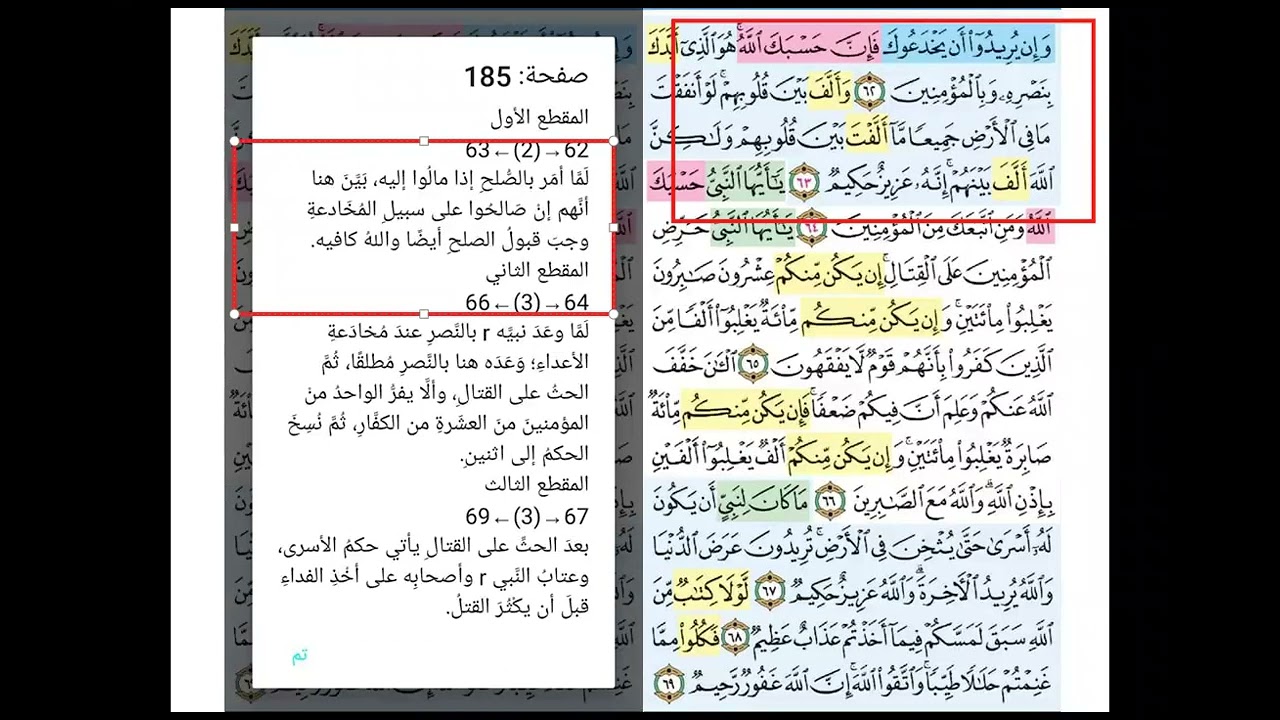 وَإِن يُرِيدُوٓا۟ أَن يَخْدَعُوكَ فَإِنَّ حَسْبَكَ ٱللَّهُ ۚ هُوَ ٱلَّذِىٓ أَيَّدَكَ
بِنَصْرِهِۦ وَبِٱلْمُؤْمِنِينَ ٦٢ وَأَلَّفَ بَيْنَ قُلُوبِهِمْ ۚ لَوْ أَنفَقْتَ
مَا فِى ٱلْأَرْضِ جَمِيعًا مَّآ أَلَّفْتَ بَيْنَ قُلُوبِهِمْ وَلَـٰكِنَّ
ٱللَّهَ أَلَّفَ بَيْنَهُمْ ۚ إِنَّهُۥ عَزِيزٌ حَكِيمٌ ٦٣ يَـٰٓأَيُّهَا ٱلنَّبِىُّ حَسْبُكَ
ٱللَّهُ وَمَنِ ٱتَّبَعَكَ مِنَ ٱلْمُؤْمِنِينَ ٦٤ يَـٰٓأَيُّهَا ٱلنَّبِىُّ حَرِّضِ
ٱلْمُؤْمِنِينَ عَلَى ٱلْقِتَالِ ۚ إِن يَكُن مِّنكُمْ عِشْرُونَ صَـٰبِرُونَ
يَغْلِبُوا۟ مِا۟ئَتَيْنِ ۚ وَإِن يَكُن مِّنكُم مِّا۟ئَةٌ يَغْلِبُوٓا۟ أَلْفًا مِّنَ
ٱلَّذِينَ كَفَرُوا۟ بِأَنَّهُمْ قَوْمٌ لَّا يَفْقَهُونَ ٦٥ ٱلْـَٔـٰنَ خَفَّفَ
ٱللَّهُ عَنكُمْ وَعَلِمَ أَنَّ فِيكُمْ ضَعْفًا ۚ فَإِن يَكُن مِّنكُم مِّا۟ئَةٌ
صَابِرَةٌ يَغْلِبُوا۟ مِا۟ئَتَيْنِ ۚ وَإِن يَكُن مِّنكُمْ أَلْفٌ يَغْلِبُوٓا۟ أَلْفَيْنِ
بِإِذْنِ ٱللَّهِ ۗ وَٱللَّهُ مَعَ ٱلصَّـٰبِرِينَ ٦٦ مَا كَانَ لِنَبِىٍّ أَن يَكُونَ
لَهُۥٓ أَسْرَىٰ حَتَّىٰ يُثْخِنَ فِى ٱلْأَرْضِ ۚ تُرِيدُونَ عَرَضَ ٱلدُّنْيَا
وَٱللَّهُ يُرِيدُ ٱلْـَٔاخِرَةَ ۗ وَٱللَّهُ عَزِيزٌ حَكِيمٌ ٦٧ لَّوْلَا كِتَـٰبٌ مِّنَ
ٱللَّهِ سَبَقَ لَمَسَّكُمْ فِيمَآ أَخَذْتُمْ عَذَابٌ عَظِيمٌ ٦٨ فَكُلُوا۟ مِمَّا
غَنِمْتُمْ حَلَـٰلًا طَيِّبًا ۚ وَٱتَّقُوا۟ ٱللَّهَ ۚ إِنَّ ٱللَّهَ غَفُورٌ رَّحِيمٌ ٦٩
صفحة: 185
المقطع الأول
62→(2)←63
لَمَّا أمَر بالصُّلحِ إذا مالُوا إليه، بَيَّنَ هنا
أنَّهم إنْ صَالحُوا على سبيلِ المُخَادعةِ
وجبَ قبولُ الصلحِ أيضًا واللهُ كافيه.
المقطع الثاني
64→(3)←66
لَمَّا وعَدَ نبيَّه r بالنَّصرِ عندَ مُخادَعةِ
الأعداءِ؛ وَعَدَه هنا بالنَّصرِ مُطلقًا، ثُمَّ
الحثُ على القتالِ، وألَّا يفرَّ الواحدُ من
المؤمنينَ منَ العشَرةِ من الكفَّارِ، ثُمَّ نُسِخَ
الحكمُ إلى اثنينِ.
المقطع الثالث
67→(3)←69
بعدَ الحثِّ على القتالِ يأتي حكمُ الأسرى،
وعتابُ النَّبي r وأصحابِه على أخْذِ الفداءِ
قبلَ أن يكْثُرَ القتلُ.
تم